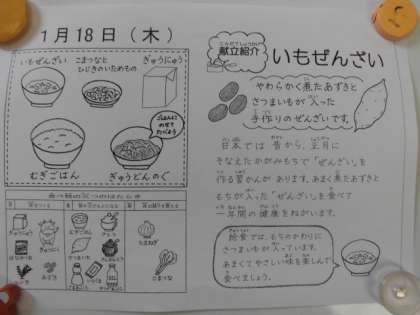 1月18日（木）
いもぜんざい
こまつなと
ひじきのいためもの
ぎゅうにゅう
むぎごはん
ごはんに
のせて
たべよう
ぎゅうどんのぐ
ぎゅうにゅう
ぎゅうにく
あずき
むぎごはん
さつまいも
たまねぎ
こまつな
献立紹介
いもぜんざい
やわらかく煮たあずきと
さつまいもが入った
手作りのぜんざいです。
日本では昔から、正月に
そなえたかがみもちで「ぜんざい」を
作る習かんがあります。あまく煮たあずきと
もちが入った「ぜんざい」を食べて
一年間の健康をねがいます。
給食では、もちのかわりに
さつまいもが入っています。
あまくてやさしい味を楽しんで
食べましょう。